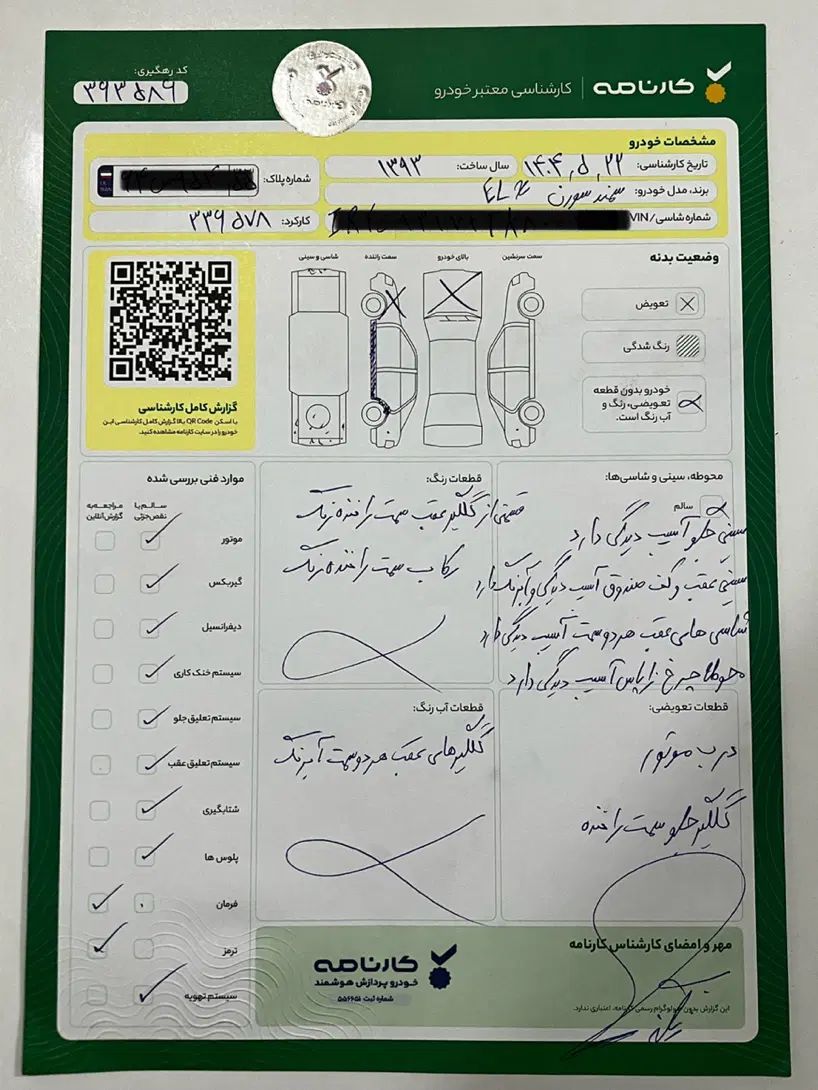 کارنامه
کارشناسی معتبر خودرو
کد رهگیری:
۳۹۳۵۸۹
مشخصات خودرو
تاریخ کارشناسی: ۱۴۰۴,۵,۲۲
سال ساخت: ۱۳۹۳
شماره پلاک:
برند، مدل خودرو: سمند سورن ELX
شماره شاسی/VIN
کارکرد: ۳۳۹۵۷۸
وضعیت بدنه
سمت سرنشین
بالای خودرو
سمت راننده
شاسی و سینی
تعویض
رنگ شدگی
خودرو بدون قطعه
تعویضی، رنگ و
آب رنگ است.
گزارش کامل کارشناسی
با اسکن QR Code بالا گزارش کامل کارشناسی این
خودرو را در سایت کارنامه مشاهده کنید.
محوطه، سینی و شاسی‌ها:
سالم
سینی جلو آسیب دیدگی دارد
سینی عقب و کف صندوق آسیب دیدگی و آبرنگ دارد
شاسی های عقب هر دو سمت آسیب دیدگی دارد
محوطه چرخ زاپاس آسیب دیدگی دارد
قطعات رنگ:
قسمتی از گلگیر عقب سمت راننده رنگ
رکاب سمت راننده رنگ
قطعات تعویضی:
درب موتور
گلگیر جلو سمت راننده
قطعات آب رنگ:
گلگیرهای عقب هر دو سمت آبرنگ
موارد فنی بررسی شده
سالم یا
نقص جزئی
مراجعه به
گزارش آنلاین
موتور
گیربکس
دیفرانسیل
سیستم خنک کاری
سیستم تعلیق جلو
سیستم تعلیق عقب
شتابگیری
پلوس ها
فرمان
ترمز
سیستم تهویه
مهر و امضای کارشناس کارنامه
این گزارش بدون هولوگرام رسمی کارنامه، اعتباری ندارد.
کارنامه
خودرو پردازش هوشمند
شماره ثبت: ۵۵۶۶۵۱